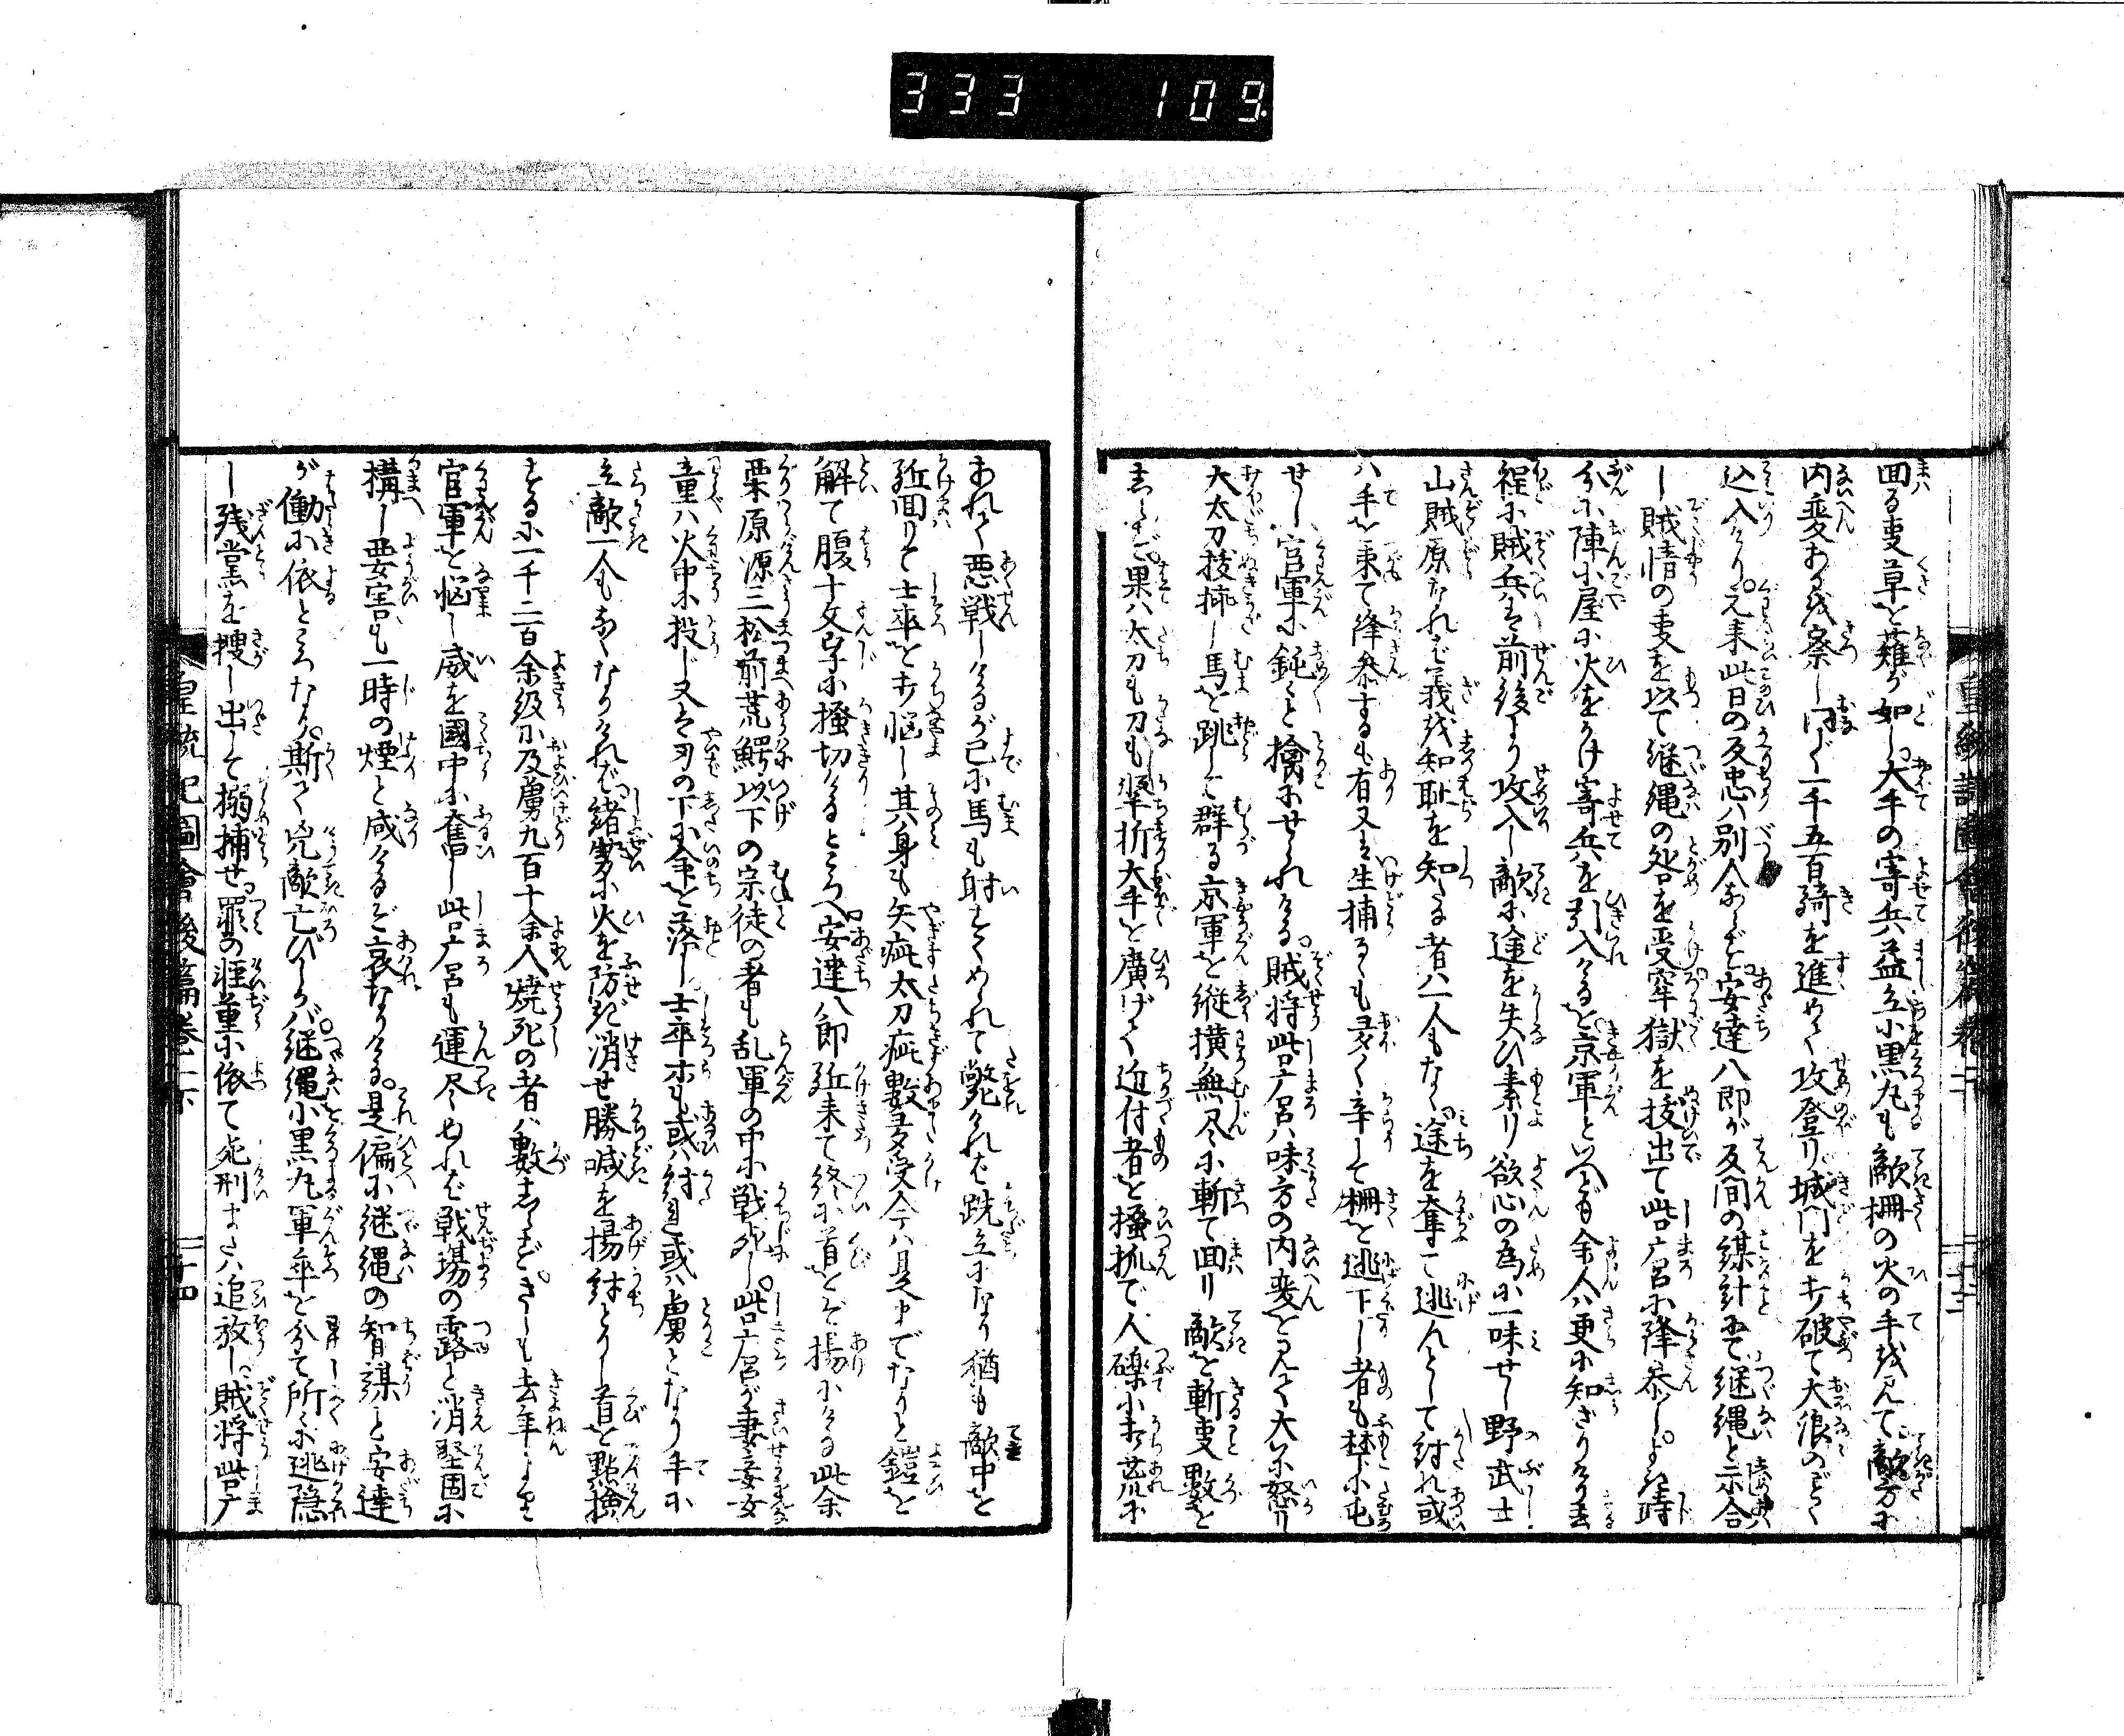 333 109
回る事草を薙が如し大手の寄兵益立小黒丸も敵柵の火の手を見て敵方に
内変あるを察し同く一千五百騎を進めて攻登り城門を打破て大浪のごとく
込入けり元来此日の反忠は別人ならず安達八郎が反間の謀計にて継縄と示合
し賊情の事を以て継縄の咎を受牢獄を抜出て呰广呂に降参しよき時
分に陣小屋に火をかけ寄兵を引入けるを京軍といへども余人は更に知ざりける去
程に賊兵は前後より攻入し敵に途を失ひ素り欲心の為に一味せし野武士
山賊原なれば義を知恥を知たる者は一人もなく途を奪て逃んとして討れ或
は手を束て降参するも有又は生捕るゝも多く辛して柵を逃下し者も林下に屯
せし官軍に鈍々と擒にせられける賊将呰广呂は味方の内変をきいて大に怒り
大太刀抜挿し馬を跳して群る京軍を縦横無尽に斬て回り敵を斬事数を
しらず果は太刀も刀も撃折大手を廣げて近付者を掻抓で人礫に打荒に
あれて悪戦しけるが已に馬も射すくめられて斃ければ跣立になり猶も敵中を
近回りて士卒を打悩し其身も矢疵太刀疵数多受今は是までなりと鎧を
解て腹十文字に掻切けるところへ安達八郎近来て終に首をぞ揚にける此余
栗原源三松前荒鰐以下の宗徒の者も乱軍の中に戦死し呰广呂が妻妾女
童は火中に投じ又は刃の下に命を落し士卒等も或は討或は虜となり手に
立敵一人もなくなりければ諸勢火を防ぎ消せ勝喊を揚討とりし首を點検
するに一千二百余級に及虜九百十余人焼死の者は数しらずさしも去年より
官軍を悩し威を國中に奮し呰广呂も運尽ぬれば戦場の露と消堅固に
構し要害も一時の煙と成けるぞ哀なりける是偏に継縄の智謀と安達
が働に依ところなり斯て兇敵亡びしかば継縄小黒丸軍卒を分て所々に逃隠
し残党を捜し出して搦捕せ罪の軽重に依て死刑または追放し賊将呰广
皇統記圖會後篇巻二下 二十四